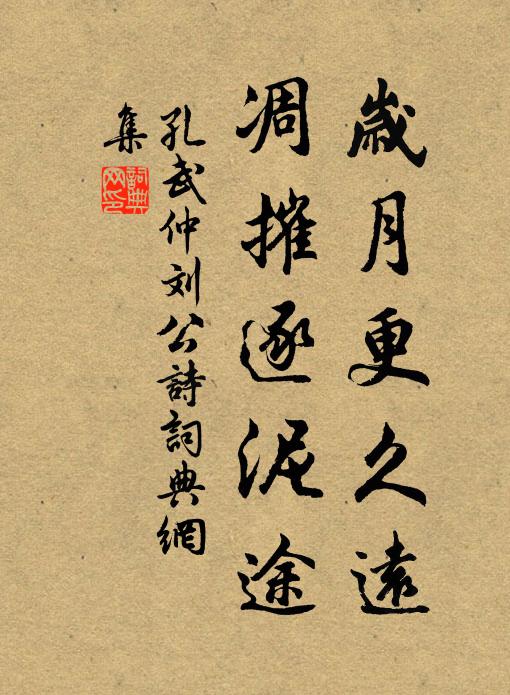 歲月更久遠
凋摧逐泥途
孔武仲刘公詩詞典網
集
詞典网印